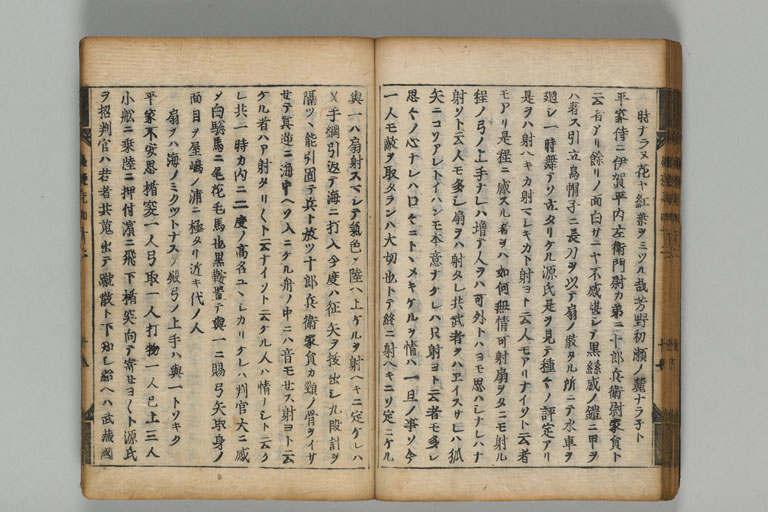 時ナラヌ花ヤ紅葉ヲミツル哉芳野初瀬ノ麓ナラ子ト
平家侍ニ伊賀平内左衛門尉カ弟ニ十郎兵衛尉家員ト
云者アリ餘リノ面白サニヤ不感堪シテ黒絲威ノ鎧ニ甲ヲ
ハ着ス引立烏帽子ニ長刀ヲ以テ扇ノ散タル所ニテ水車ヲ
廻シ一時舞テソ立タリケル源氏是ヲ見テ種々ノ評定アリ
是ヲハ射ヘキカ射マシキカト射ヨト云人モアリナイソト云者
モアリ是程ニ感スル者ヲハ如何無情可射扇ヲタニモ射ル
程ノ弓ノ上手ナレハ増テ人ヲハ可外トハヨモ思ハシナレハナ
射ソト云人モ多シ扇ヲハ射タレ共武者ヲハヱイスサレハ狐
矢ニコソアレトイハンモ本意ナケレハ只射ヨト云者モ多シ
思々ノ心ナレハ口々ニトヽメキケルヲ情ハ一旦ノ事ソ今
一人モ敵ヲ取タランハ大切也トテ終ニ射ヘキニソ定ニケル
與一ハ扇射スマシテ氣色シ陸ヘ上ケルヲ射ヘキニ定ケレハ
又手綱引返テ海ニ打入今度ハ征矢ヲ拔出シ九段計ヲ
隔ツヽ能引固テ兵ト放ツ十郎兵衛家員カ頸ノ骨ヲイサ
セテ眞逆ニ海中ヘソ入ニケル舟ノ中ニハ音モセス射ヨト云
ケル者ハア射タリ〱ト云ナイソト云ケル人ハ情ナシト云ケ
レ共一時カ内ニ二度ノ高名ユヽシカリケレハ判官大ニ感
メ白驄馬ニ尾花毛馬也黒鞍置テ與一ニ賜弓矢取身ノ
面目ヲ屋嶋ノ浦ニ極タリ近キ代ノ人
扇ヲハ海ノミクツトナスノ殿弓ノ上手ハ與一トソキク
平家不安思楯突一人弓取一人打物一人已上三人
小舩ニ乗陸ニ押付濱ニ飛下楯突向テ寄セヨ〱ト源氏
ヲ招判官ハ若者共蒐出テ蹴散ト下知シ給ヘハ武藏國